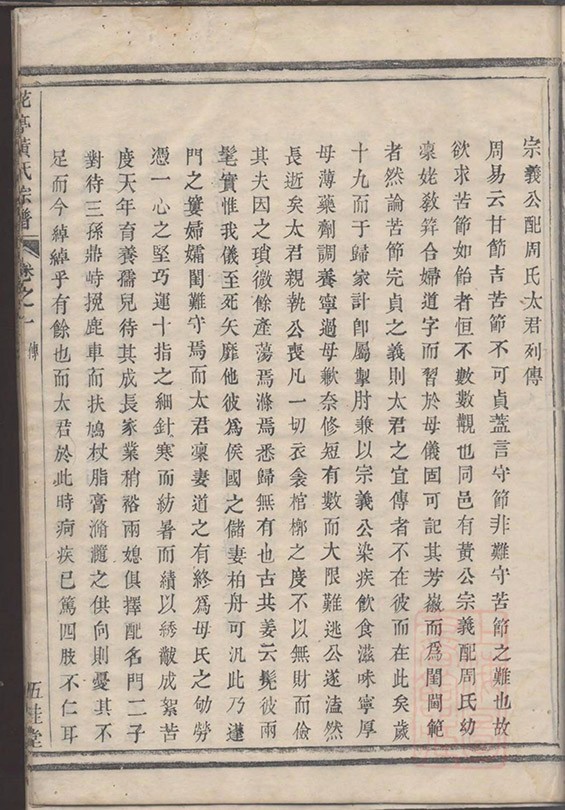 宗義公配周氏太君列傳
周易云甘節吉苦節不可貞蓋言守節非難守苦節之難也故
欲求苦節如飴者恒不數數覯也同邑有黃公宗義配周氏幼
稟姥教笄合婦道字而習於母儀固可記其芳嶽而爲閨閫範
者然論苦節完貞之義則太君之宜傳者不在彼而在此矣歲
十九而于歸家計卽屬掣肘兼以宗義公染疾飲食滋味寧厚
母薄藥劑調養寧過母歉奈修短有數而大限難逃公遂溘然
長逝矣太君親執公喪凡一切衣衾棺槨之度不以無財而儉
其夫因之瑣微餘產蕩焉滌焉悉歸無有也古共姜云髧彼兩
髦實惟我儀至死矢靡他彼爲侯國之儲妻柏舟可汎此乃蓬
門之窶婦孀閨難守焉而太君稟妻道之有終爲母氏之劬勞
憑一心之堅巧運十指之細針寒而紡暑而績以綉黻成絮苦
度天年育養孺兒待其成長家業稍裕兩媳俱擇配名門二子
對待三孫鼎峙挽鹿車而扶鳩杖脂膏滫瀡之供向則憂其不
足而今綽綽乎有餘也而太君於此時痾疾已篤四肢不仁耳
花亭黃氏宗譜
卷之一 傳
五桂堂